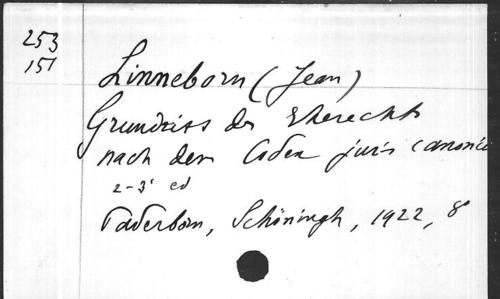 253
151
Linneborn (Jean)
Grundriss des Eherechts
nach dem Codex juris canonici
2-3e ed
Paderborn, Schöningh, 1922, 8°